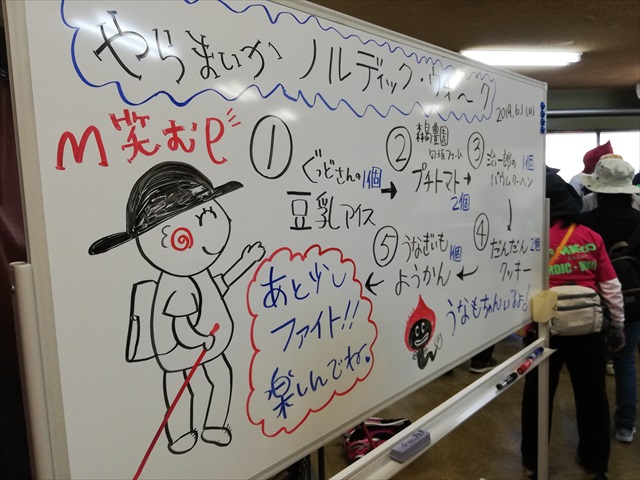 やらまいか ノルディック・ウォーク
2019.6.1(日)
M笑むP
① ぐっどさんの 1個
豆乳アイス
② 森島農園
プチトマト
2個
③ 治一郎の 1個
バウムクーヘン
④ だんだん 2個
クッキー
⑤ うなぎいも 1個
ようかん
うなもちゃんいるよ!
あと少し
ファイト!!
楽しんでね。